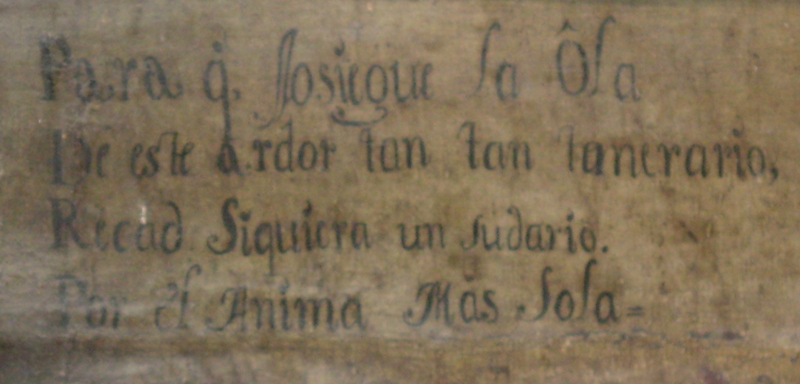 Para q. Sosiegue la Ôla
De este ardor tan tan tanerario,
Recad Siquiera un sudario.
Por el Anima Mas Sola=